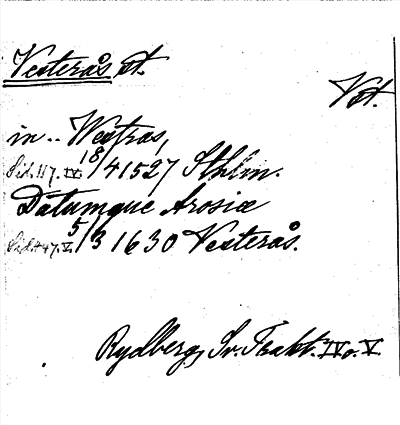 Vesterås st.
Vst.
in .. Westras,
Sid. 117. IV. 18/4 1527 Sthlm.
Datumque Arosiæ
Sid. 447. V. 5/3 1630 Vesterås.
Rydberg, Sv. Trakt. IV o. V